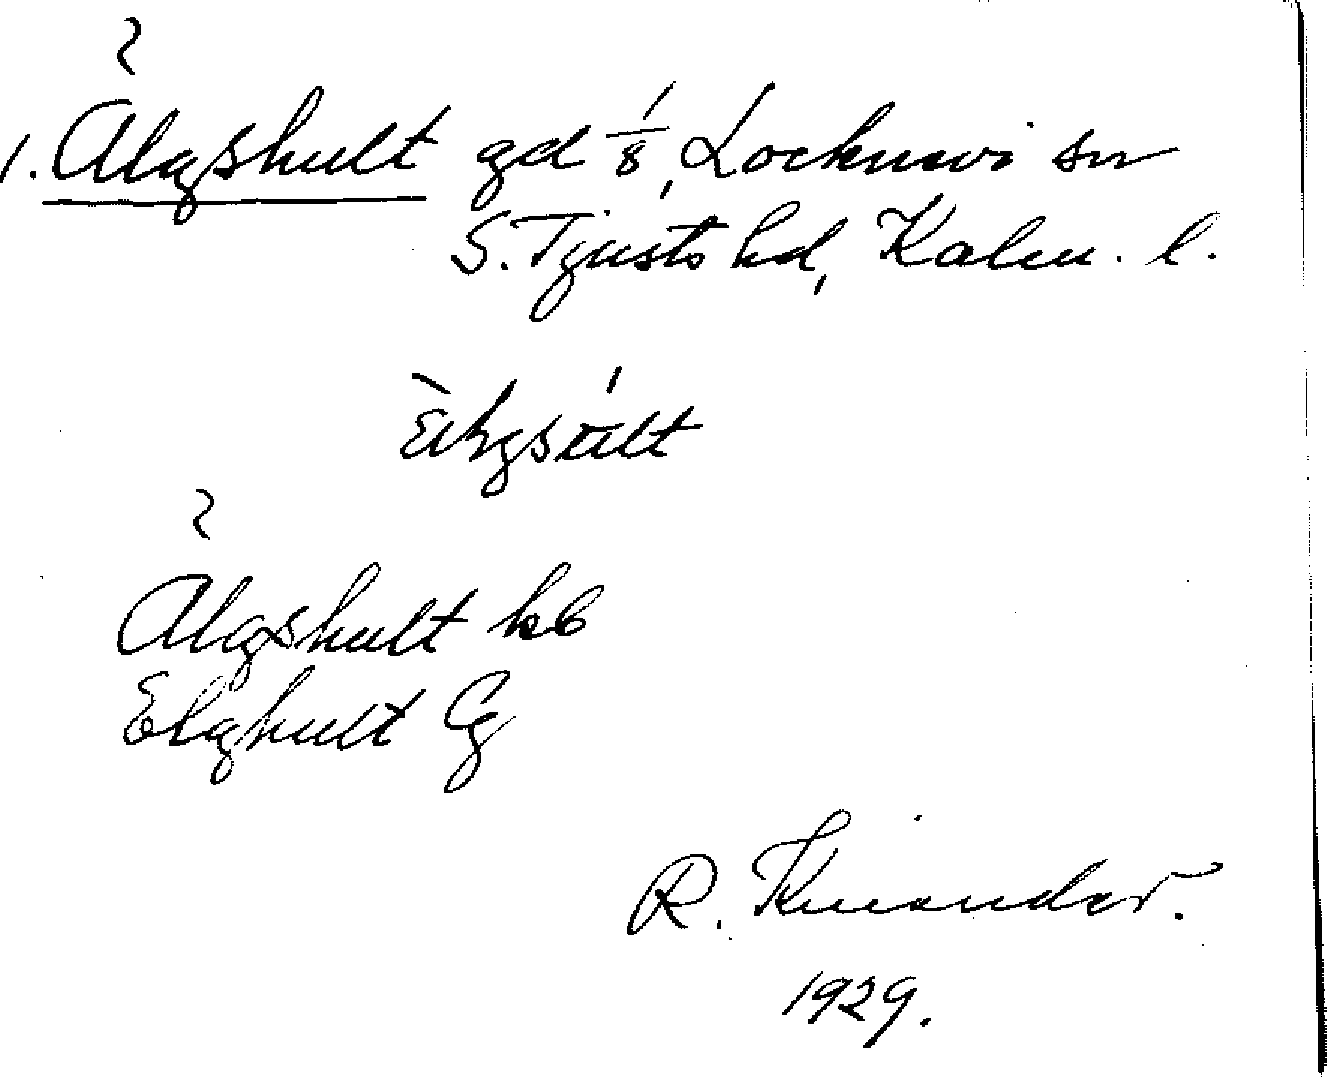 1. Älgshult gd 1/8, Locknevi sn
S. Tjusts hd, Kalm. l.
Älgshult kb
Elghult Cg
R. Kinander.
1929.